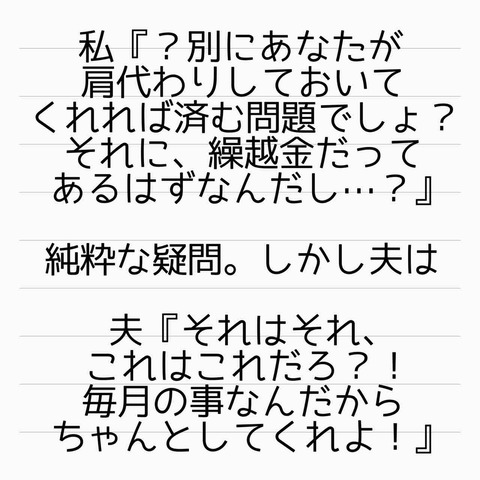 私『？別にあなたが
肩代わりしておいて
くれれば済む問題でしょ？
それに、繰越金だって
あるはずなんだし…？』
純粋な疑問。しかし夫は
夫『それはそれ、
これはこれだろ？！
毎月の事なんだから
ちゃんとしてくれよ！』